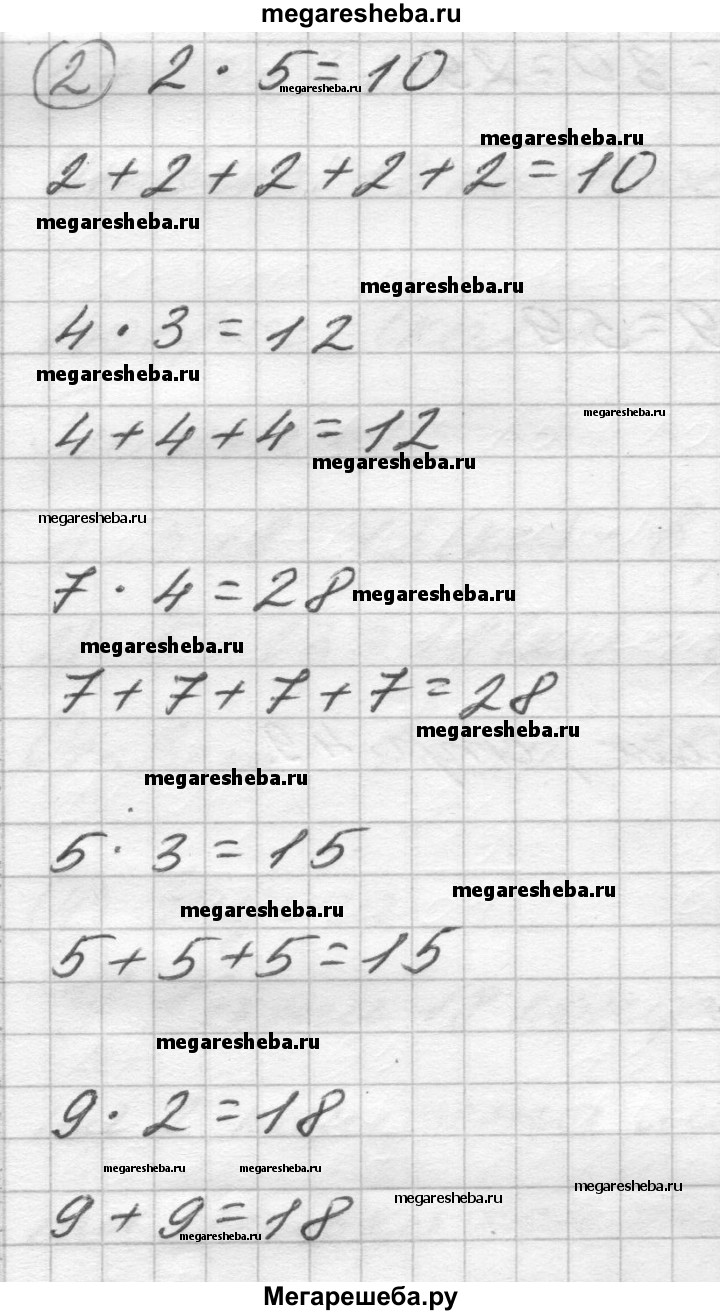 megaresheba.ru
2 2 · 5 = 10
megaresheba.ru
megaresheba.ru
2 + 2 + 2 + 2 + 2 = 10
megaresheba.ru
megaresheba.ru
4 · 3 = 12
megaresheba.ru
megaresheba.ru
4 + 4 + 4 = 12
megaresheba.ru
megaresheba.ru
7 · 4 = 28 megaresheba.ru
megaresheba.ru
7 + 7 + 7 + 7 = 28
megaresheba.ru
megaresheba.ru
5 · 3 = 15
megaresheba.ru
megaresheba.ru
5 + 5 + 5 = 15
megaresheba.ru
9 · 2 = 18
megaresheba.ru megaresheba.ru
megaresheba.ru
megaresheba.ru
9 + 9 = 18
megaresheba.ru
Мегарешеба.ру